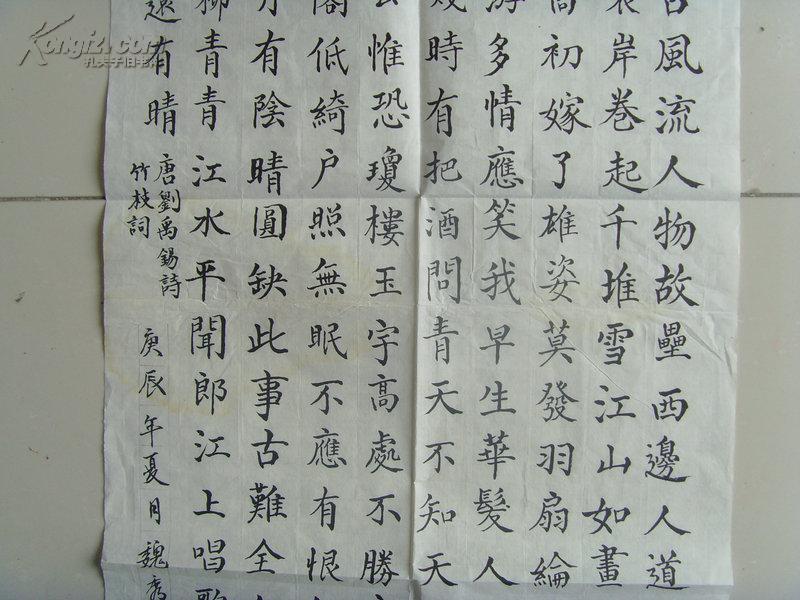 風流人物故壘西邊人道
岸卷起千堆雪江山如畫
初嫁了雄姿莫發羽扇綸
游多情應笑我早生華髮人
幾時有把酒問青天不知天
惟恐瓊樓玉宇高處不勝
閣低綺户照無眠不應有恨
有陰晴圓缺此事古難全
柳青青江水平聞郎江上唱歌
還有晴
唐劉禹錫詩
竹枝詞
庚辰年夏月魏秀
Kongfz.com
孔夫子旧书网